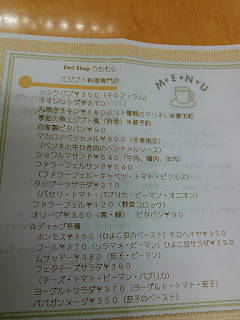 Deli Shop うちむら
エジプト料理専門店
MENU
シシケバブ¥350(チキン・ラム)
チキンレッグ¥370
丸焼きチキン¥1800(3種類のマリネ)※要予約
季節の魚エジプト風(時価)※要予約
自家製ピタパン¥90
マカロナベシャメル¥900(冬季限定)
(ペンネと牛ひき肉のベシャメルソース)
ショワルマサンド¥540(牛肉、鶏肉、羊肉)
ファラーフェルサンド¥540
(ファラーフェル・キャベツ・トマト・ピクルス)
タッブーラサラダ¥370
(パセリ・トマト・パプリカ・ピーマン・オニオン)
ファラーフェル¥120(野菜コロッケ)
オリーブ¥350(黒・緑) ピタパン¥90
☆ディップ各種
ホンモス¥350(ひよこ豆のペースト)モロヘイヤ¥350
フール¥370(ソラマメ・ピーマン)ひよこ豆サラダ¥250
ムサッアー¥380(茄子・ピーマン)
フェタチーズサラダ¥380
(チーズ・トマト・ピーマン・パプリカ)
ヨーグルトサラダ¥370(ヨーグルト・トマト・茄子)
ババガンヌーグ¥350(茄子のペースト)